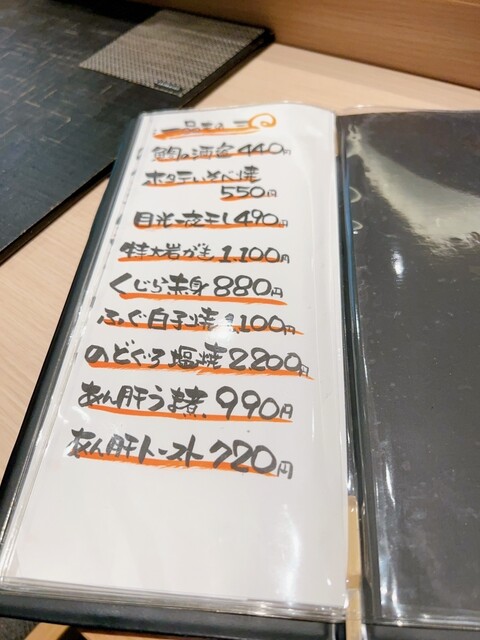 一品メニュー
鯛の酒盗 440円
ホタテいそべ焼
550円
目光一夜干し 490円
特大岩がき 1,100円
くじら赤身 880円
ふぐ白子焼 1,100円
のどぐろ塩焼 2200円
あん肝うま煮 990円
あん肝トースト 720円